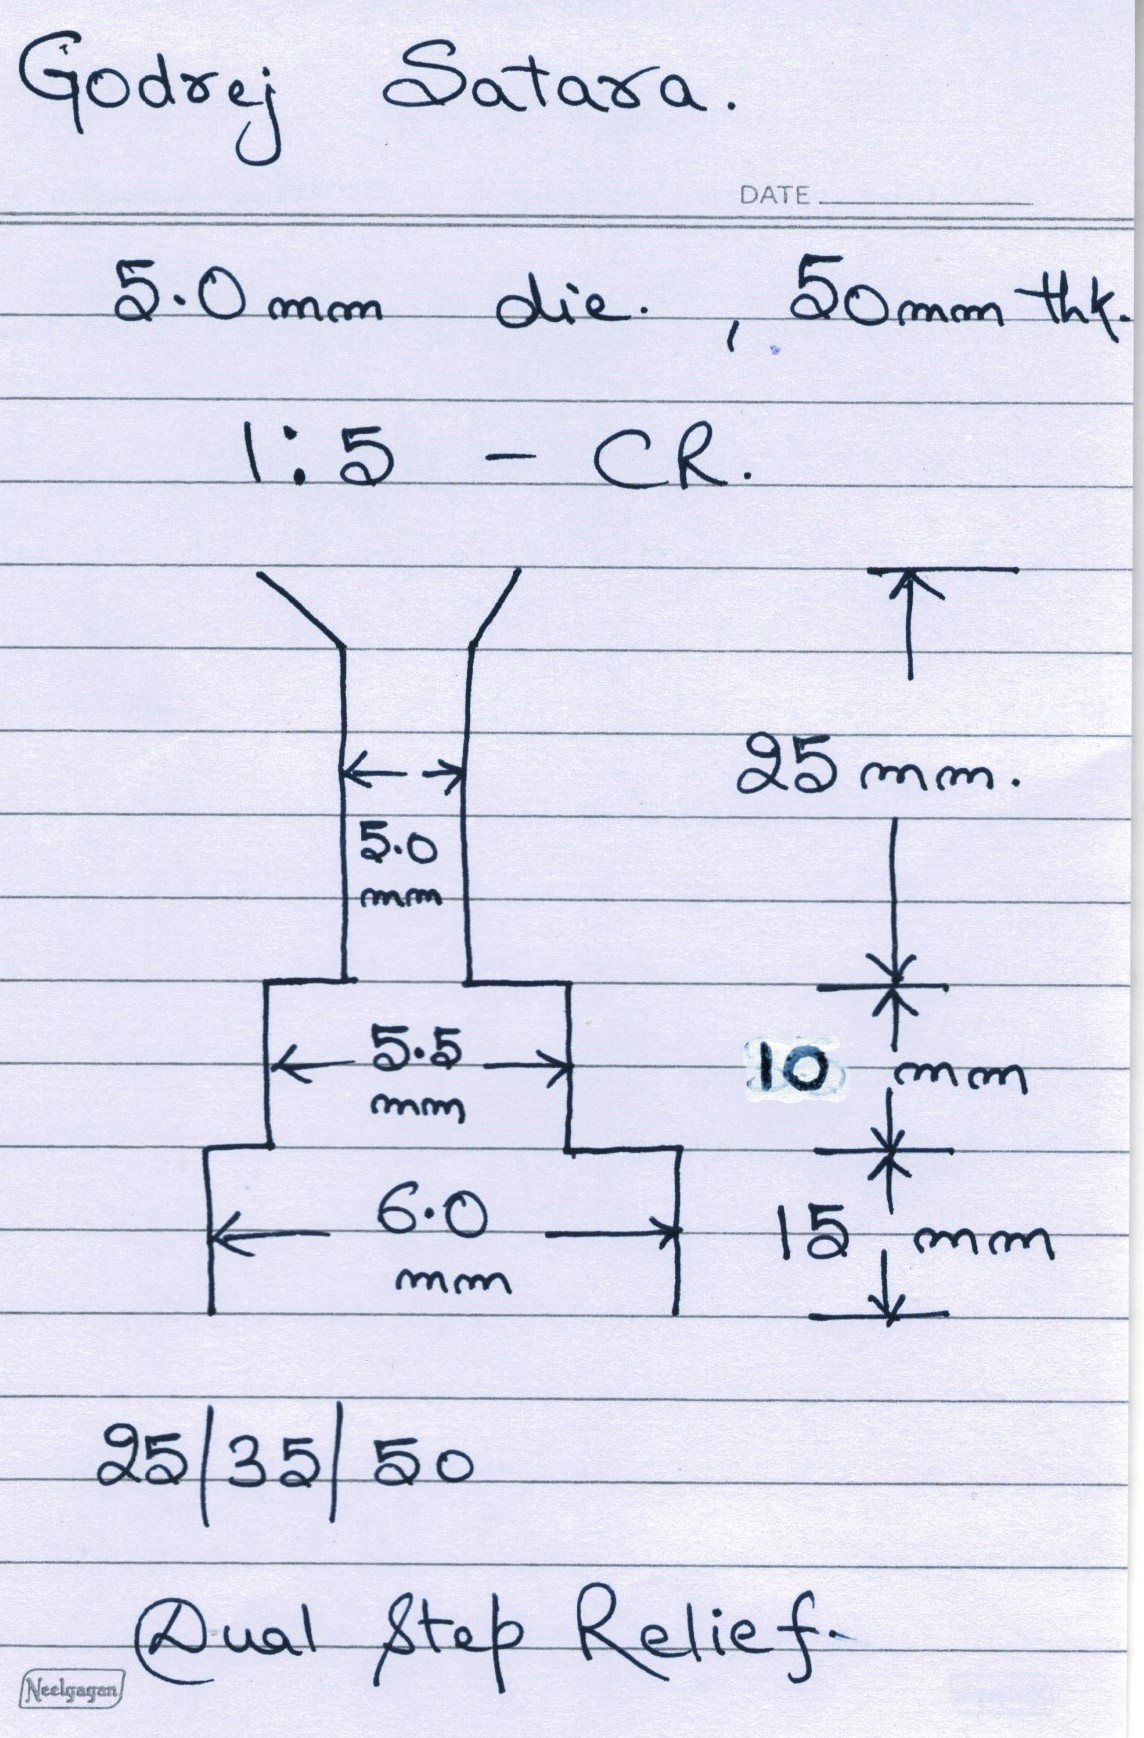 Godrej Satara.
DATE
5.0 mm die. , 50 mm thk.
1:5 - CR.
25 mm.
5.0
mm
5.5
mm
10 mm
6.0
mm
15 mm
25/35/50
Dual Step Relief.
Neelgagan